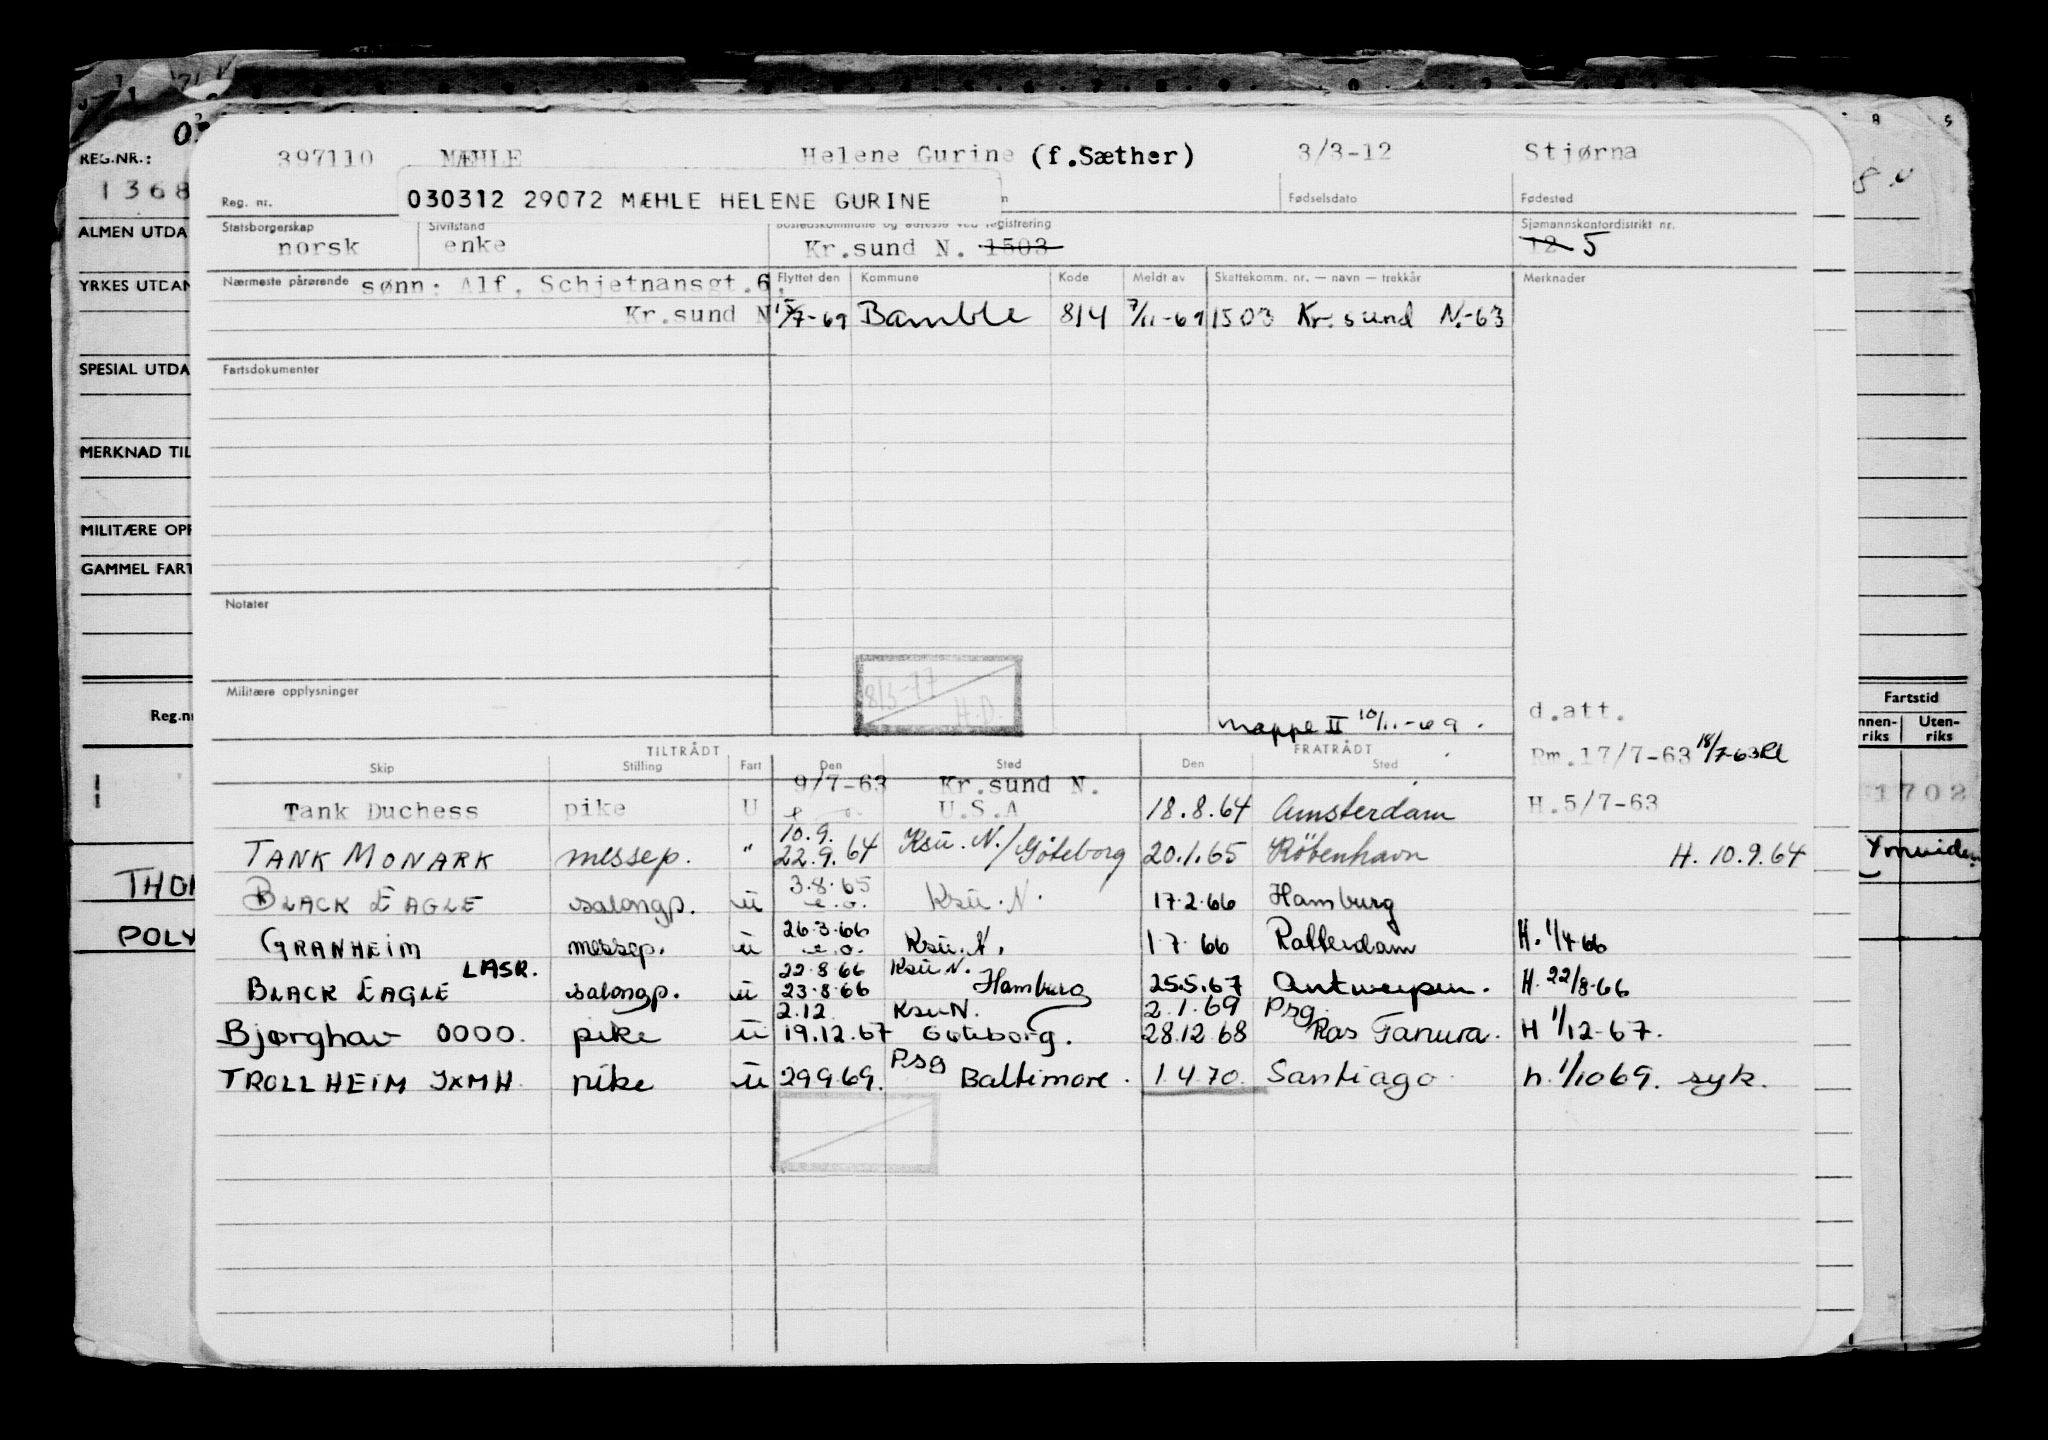 REG.NR.:
1368
ALMEN UTDA
YRKES UTDAN
SPESIAL UTDA
MERKNAD TIL
MILITÆRE OPP
GAMMEL FART
Reg.nr
THO
POLY
397110 MÆHLE Helene Gurine (f.Sæther) 3/3-12 Stjørna
030312 29072 MÆHLE HELENE GURINE
Reg. nr. Fødselsdato Fødested
Statsborgerskap Sivilstand Bostedskommune og adresse ved registrering Sjømannskontordistrikt nr.
norsk enke Kr.sund N. 1503 12 5
Nærmeste pårørende sønn: Alf, Schjetnansgt.6, Flyttet den Kommune Kode Meldt av Skattekomm. nr. — navn — trekkår Merknader
Kr.sund N 15/7-69 Bamble 814 7/11-69 1503 Kr.sund N.-63
Fartsdokumenter
Notater
8/3-77 H.D.
Militære opplysninger
mappe II 10/11-69. d.att.
TILTRÅDT FRATRÅDT Rm.17/7-63 18/7-63
Skip Stilling Fart Den Sted Den Sted
9/7-63 Kr.sund N.
Tank Duchess pike U U.S.A 18.8.64 Amsterdam H.5/7-63
10.9.
TANK MONARK messep. " 22.9.64 Ksu.N./Göteborg 20.1.65 Köbenhavn H. 10.9.64
3.8.65
BLACK EAGLE salongp. u e.o. Ksu.N. 17.2.66 Hamburg
26.3.66
GRANHEIM messep. u e.o. Ksu.N. 1.7.66 Rotterdam H. 1/4-66
LASR. 22.8.66 Ksu N.
BLACK EAGLE salongp. u 23.8.66 Hamburg 25.5.67 Antwerpen. H. 22/8-66
2.12. Ksu N. 2.1.69 Psg
Bjørghav OOOO. pike u 19.12.67 Göteborg. 28.12.68 Ras Tanura. H 1/12-67.
Psg
TROLLHEIM JXMH pike u 29.9.69. Baltimore. 1.4.70. Santiago h. 1/10 69. syk.
Fartstid
nnen-
riks
Uten-
riks
1702